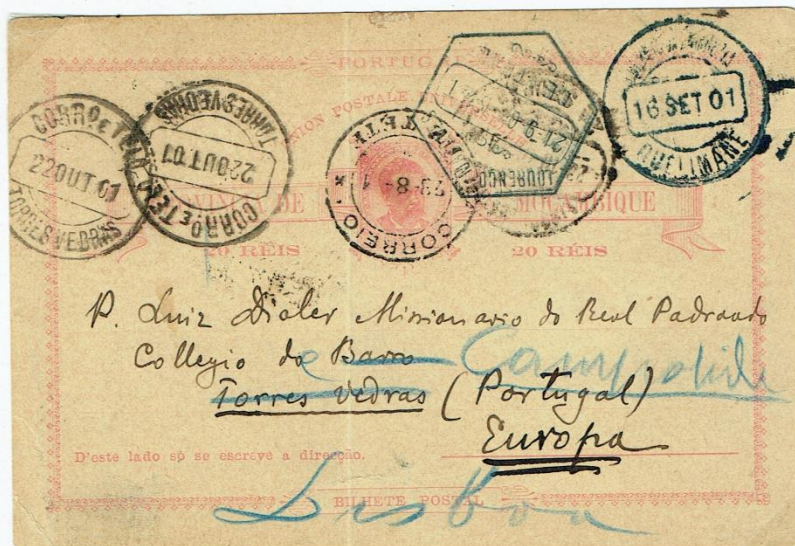 PORTUGAL
UNION POSTALE UNIVERSELLE
PROVINCIA DE MOÇAMBIQUE
20 RÉIS 20 RÉIS
CORRO. E TELO.
22 OUT 01
TORRES VEDRAS
CORRO. E TELO.
22 OUT 01
TORRES VEDRAS
CORREIO
TETE
LOURENÇO
16 SET 01
QUELIMANE
P. Luiz Dialer Missionario do Real Padroado
Collegio do Barro
Torres Vedras (Portugal)
Europa
Campolide
D'este lado só se escreve a direcção.
BILHETE POSTAL
Lisboa